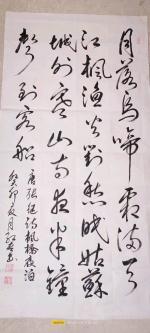 月落乌啼霜满天
江枫渔火对愁眠姑苏
城外寒山寺夜半钟
声到客船
唐张继诗枫桥夜泊
癸卯夏月